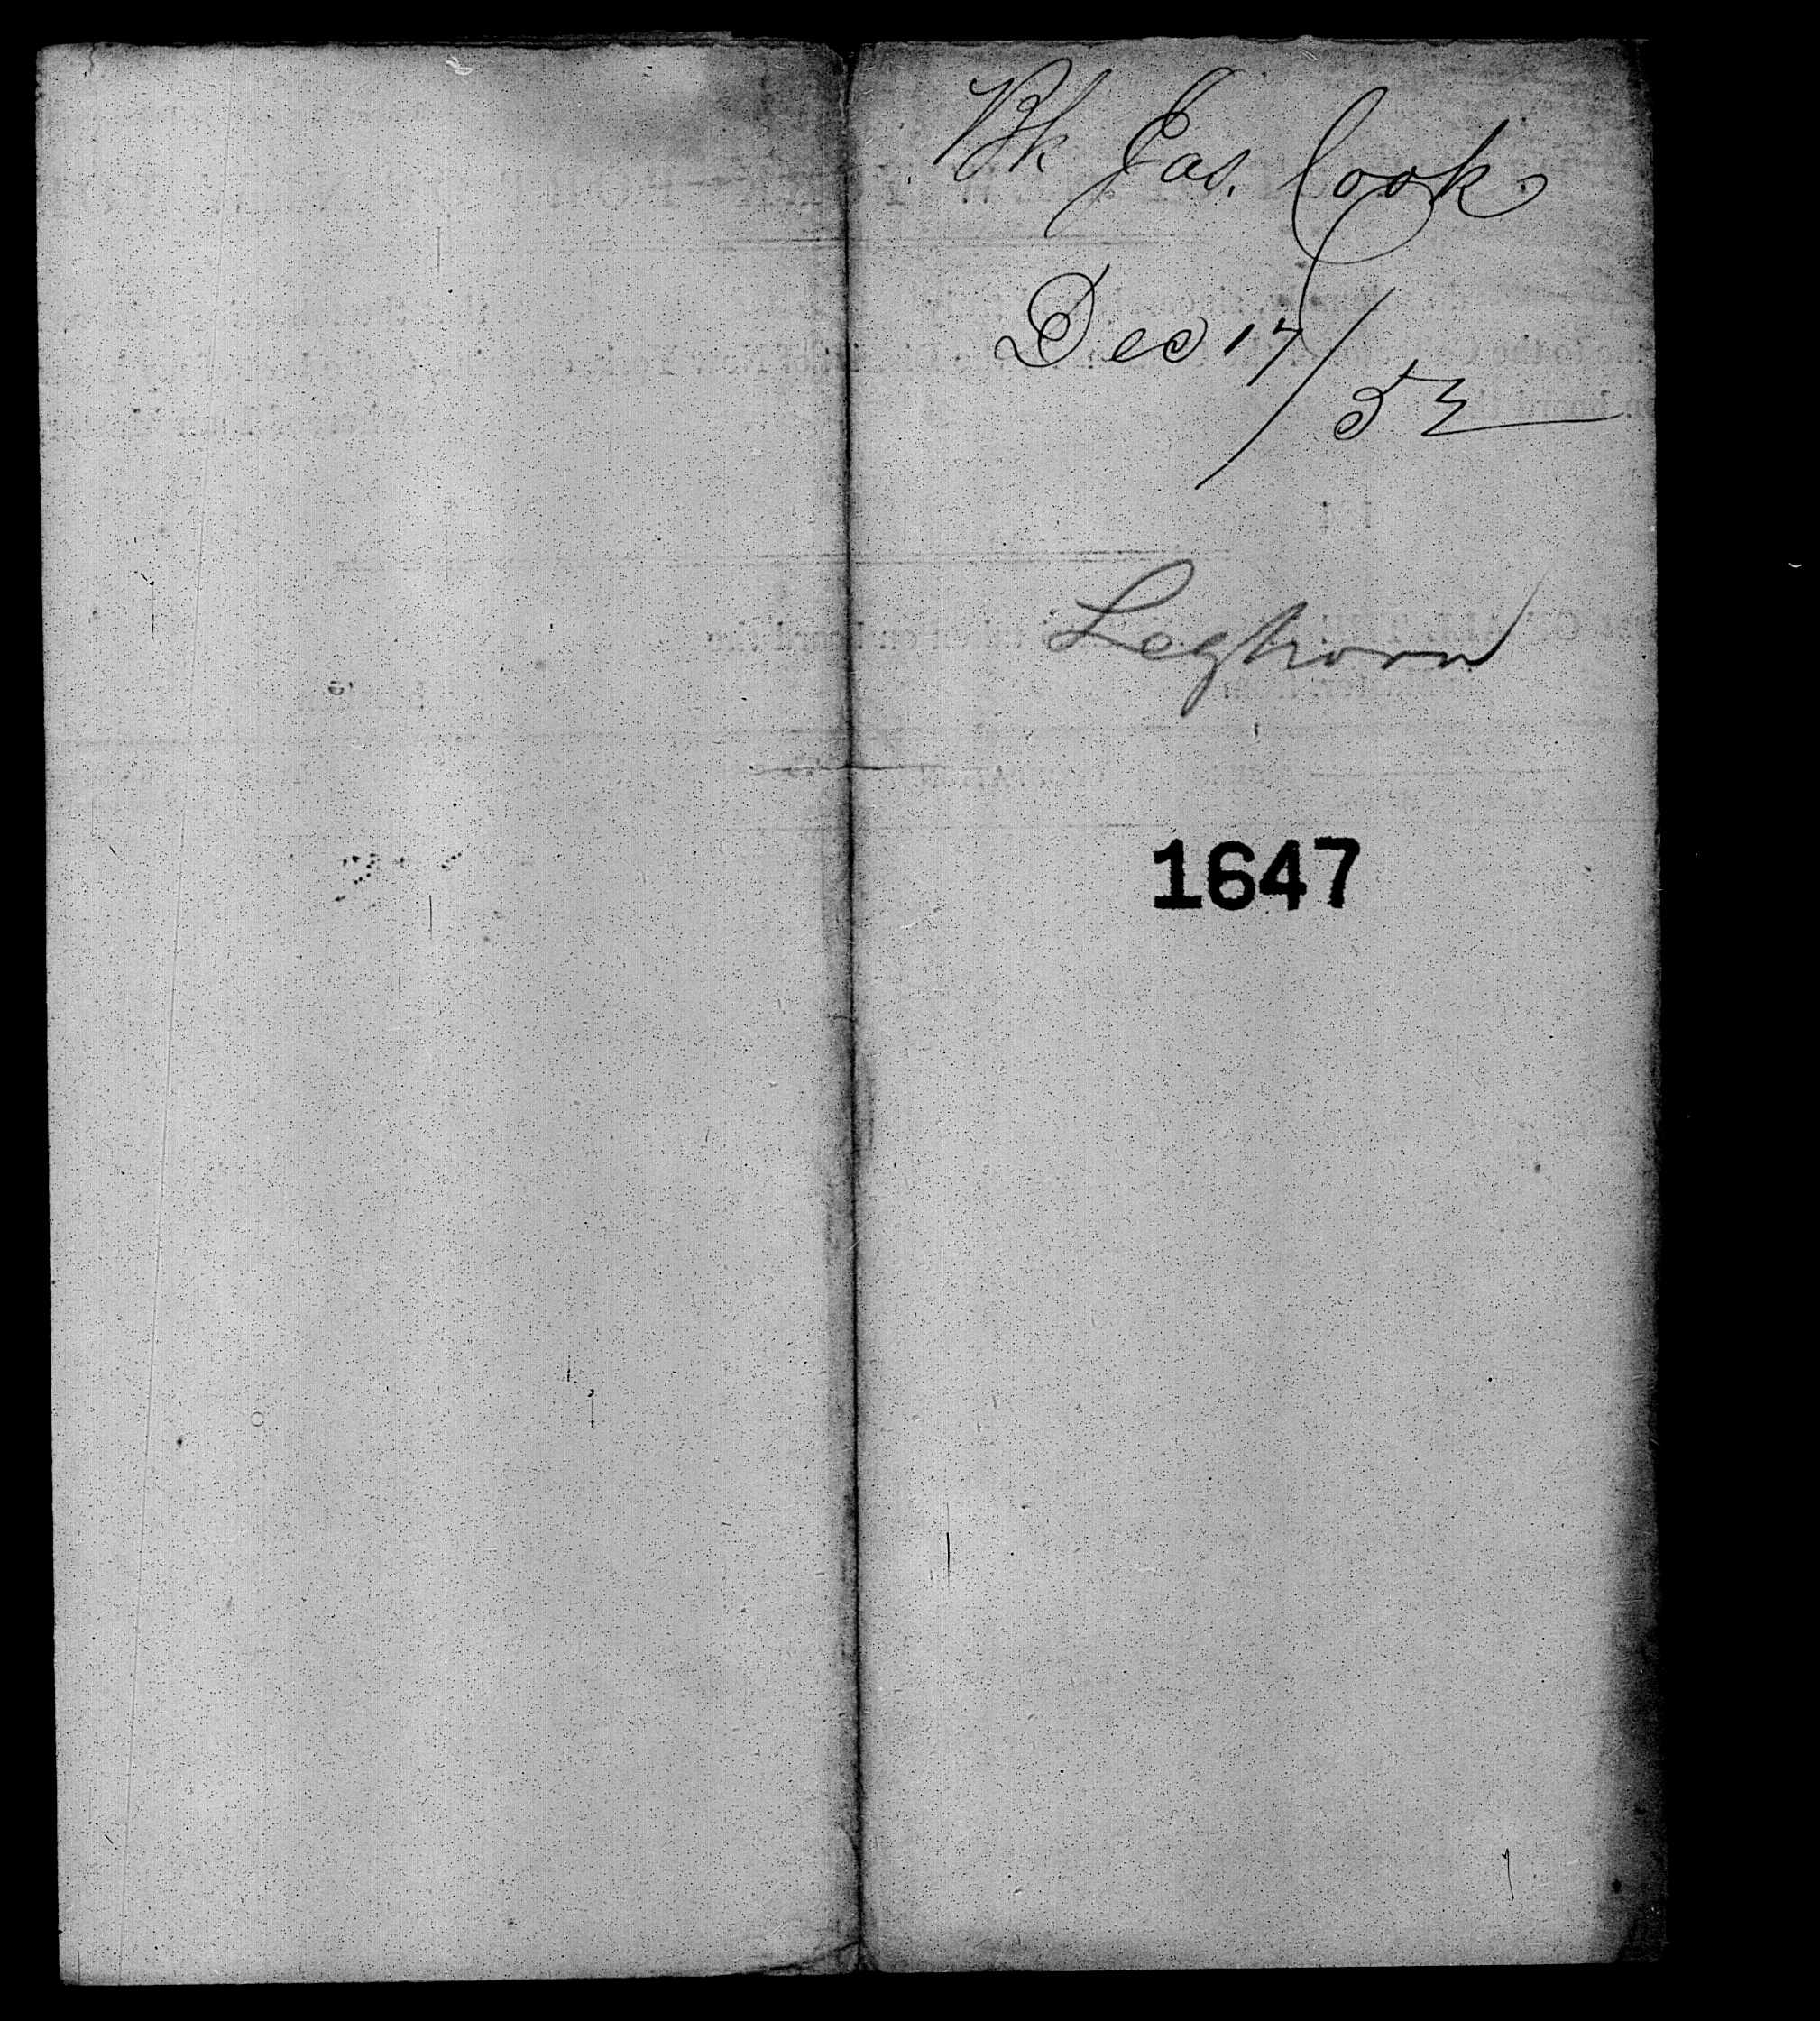 Bk Jas. Cook
Dec 17/52
Leghorn
1647